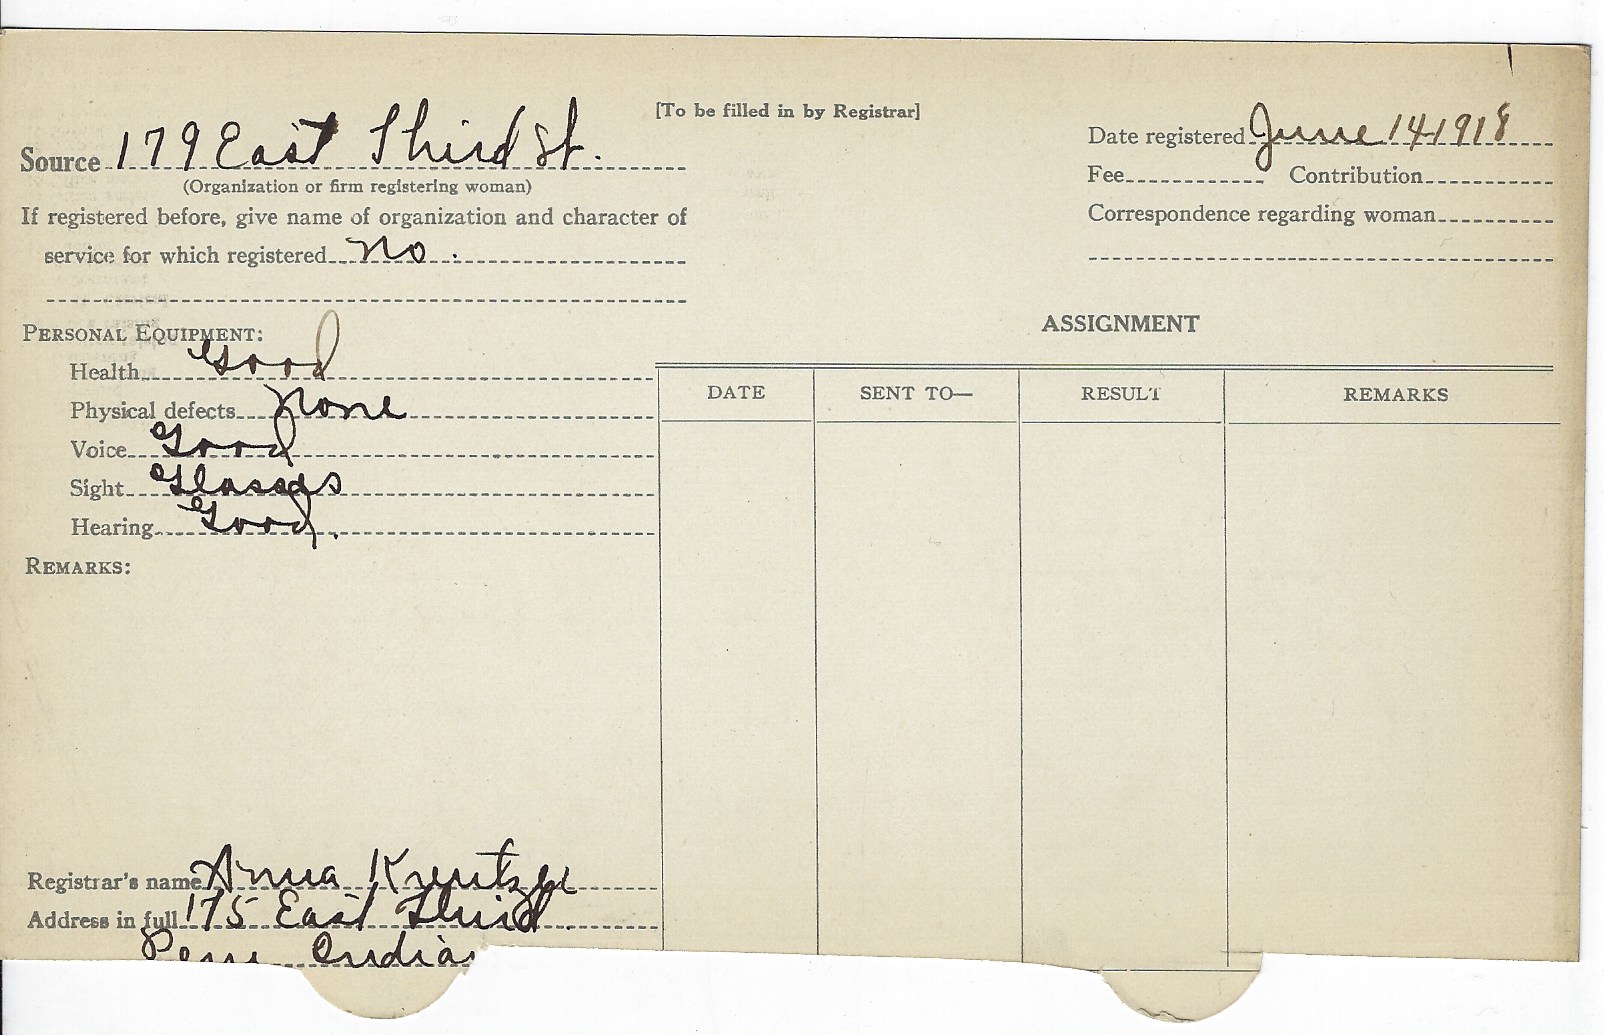 [To be filled in by Registrar]
Source 179 East Third St.
(Organization or firm registering woman)
If registered before, give name of organization and character of
service for which registered no.
Date registered June 14 1918
Fee Contribution
Correspondence regarding woman
PERSONAL EQUIPMENT:
Health Good
Physical defects None
Voice Good
Sight Glasses
Hearing Good.
REMARKS:
ASSIGNMENT
DATE SENT TO— RESULT REMARKS
Registrar's name Anna Kreutzer
Address in full 175 East Third.
Peru Indian